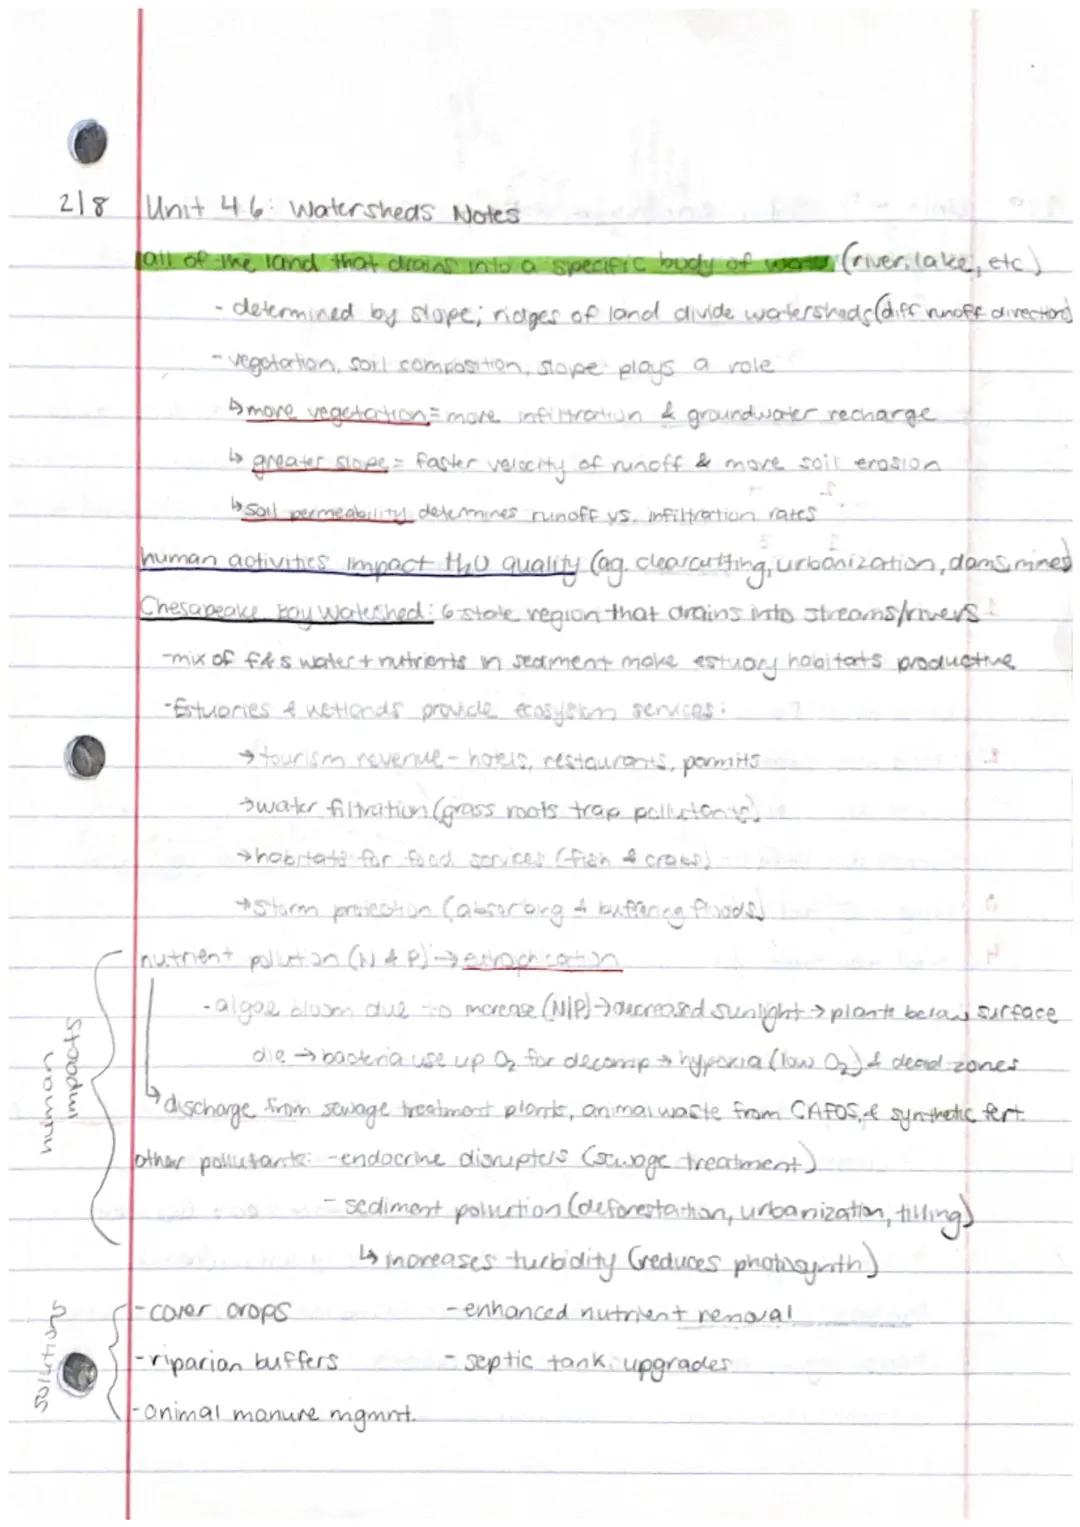 2/8 Unit 4.6: Watersheds Notes
all of the land that drains into a specific body of water (river, lake, etc)
- determined by slope; ridges of land divide watersheds (diff runoff directions)
- vegetation, soil composition, slope plays a role
↳ more vegetation = more infiltration & groundwater recharge
↳ greater slope = faster velocity of runoff & more soil erosion
↳ soil permeability determines runoff vs. infiltration rates
human activities impact H₂O quality (ag. clearcutting, urbanization, dams, mines)
Chesapeake Bay Watershed: 6 state region that drains into streams/rivers
-mix of f&s water + nutrients in sediment make estuary habitats productive
-Estuaries & wetlands provide ecosystem services:
→ tourism revenue - hotels, restaurants, permits
→ water filtration (grass roots trap pollutants)
→ habitats for food services (fish & crabs)
→ storm protection (absorbing & buffering floods)
human impacts
nutrient pollution (N & P) → eutrophication
- algae bloom due to increase (N/P) → decreased sunlight → plants below surface
die → bacteria use up O₂ for decomp → hypoxia (low O₂) & dead zones
↳ discharge from sewage treatment plants, animal waste from CAFOS, & synthetic fert.
other pollutants: - endocrine disrupters (sewage treatment)
- sediment pollution (deforestation, urbanization, tilling)
↳ increases turbidity (reduces photosynth)
solutions
- cover crops - enhanced nutrient removal
- riparian buffers - septic tank upgrades
- animal manure mgmnt.